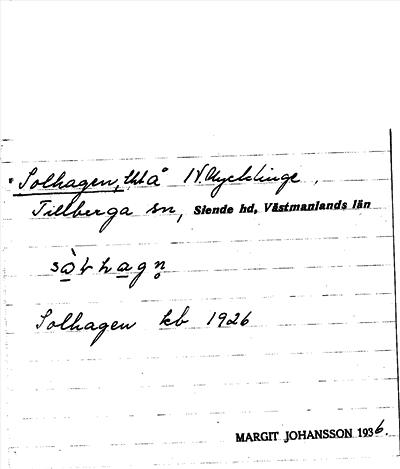 Solhagen, lht å N. Mycklinge.
Tillberga sn, Siende hd, Västmanlands län
sòlhagn̥
Solhagen kb 1926
MARGIT JOHANSSON 1936.